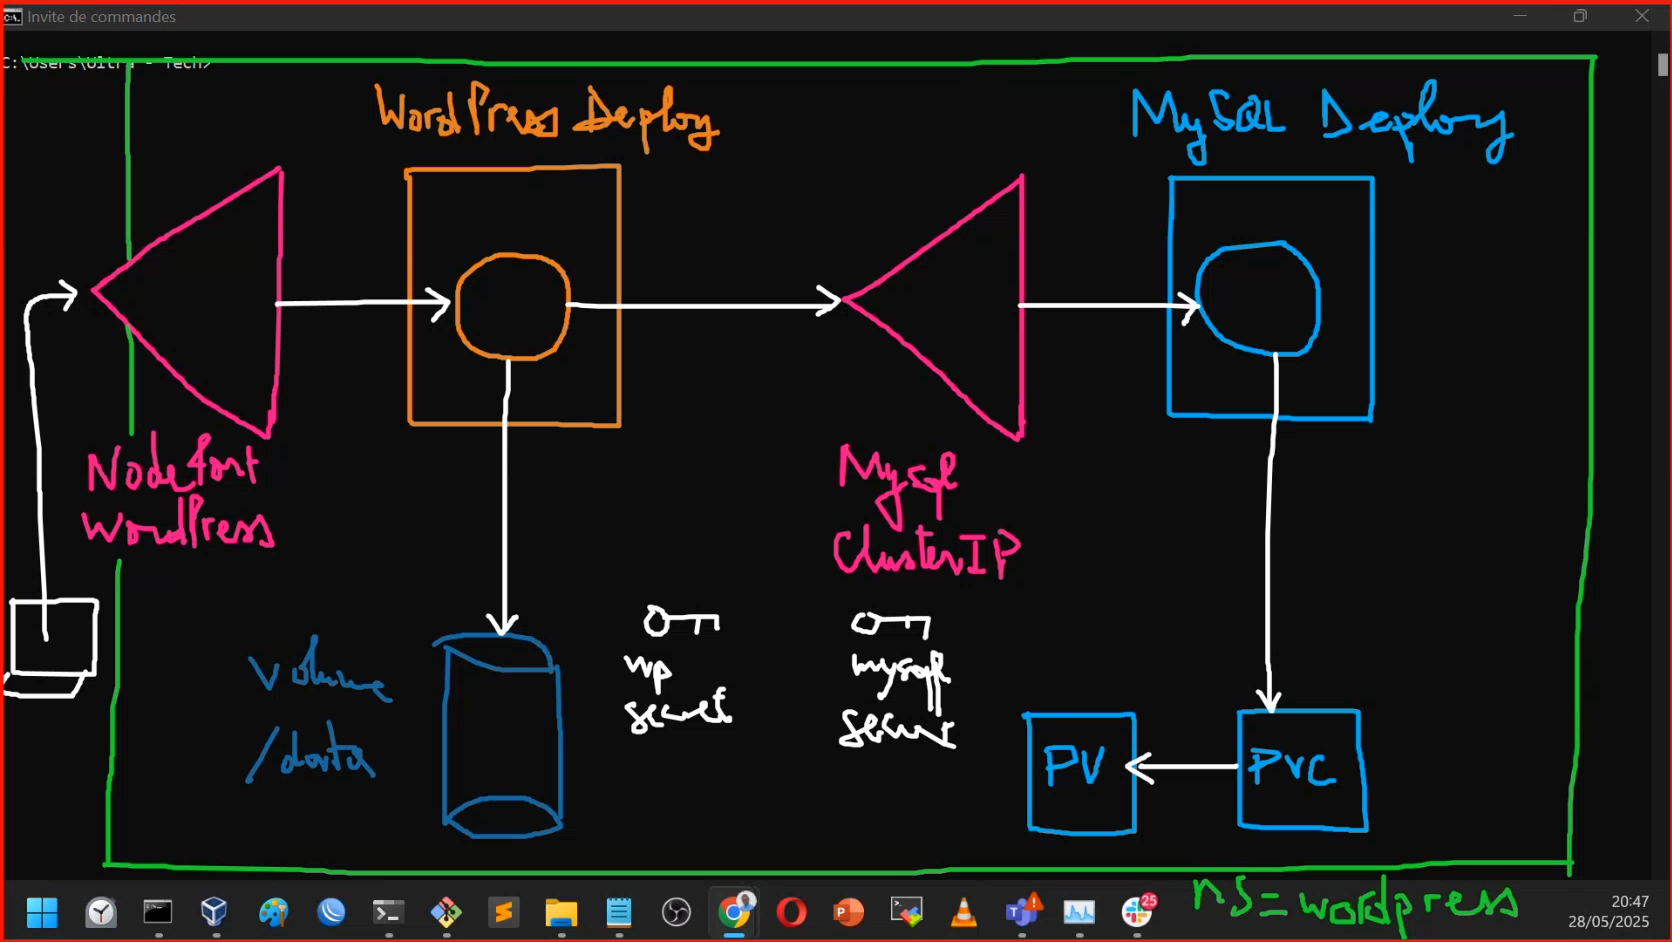 Invite de commandes
C:\Users\Ultra - Tech>
WordPress Deploy
MySQL Deploy
NodePort
WordPress
Mysql
ClusterIP
Volume
/data
wp
secret
mysql
secret
PV
PVC
25
ns=wordpress
20:47
28/05/2025